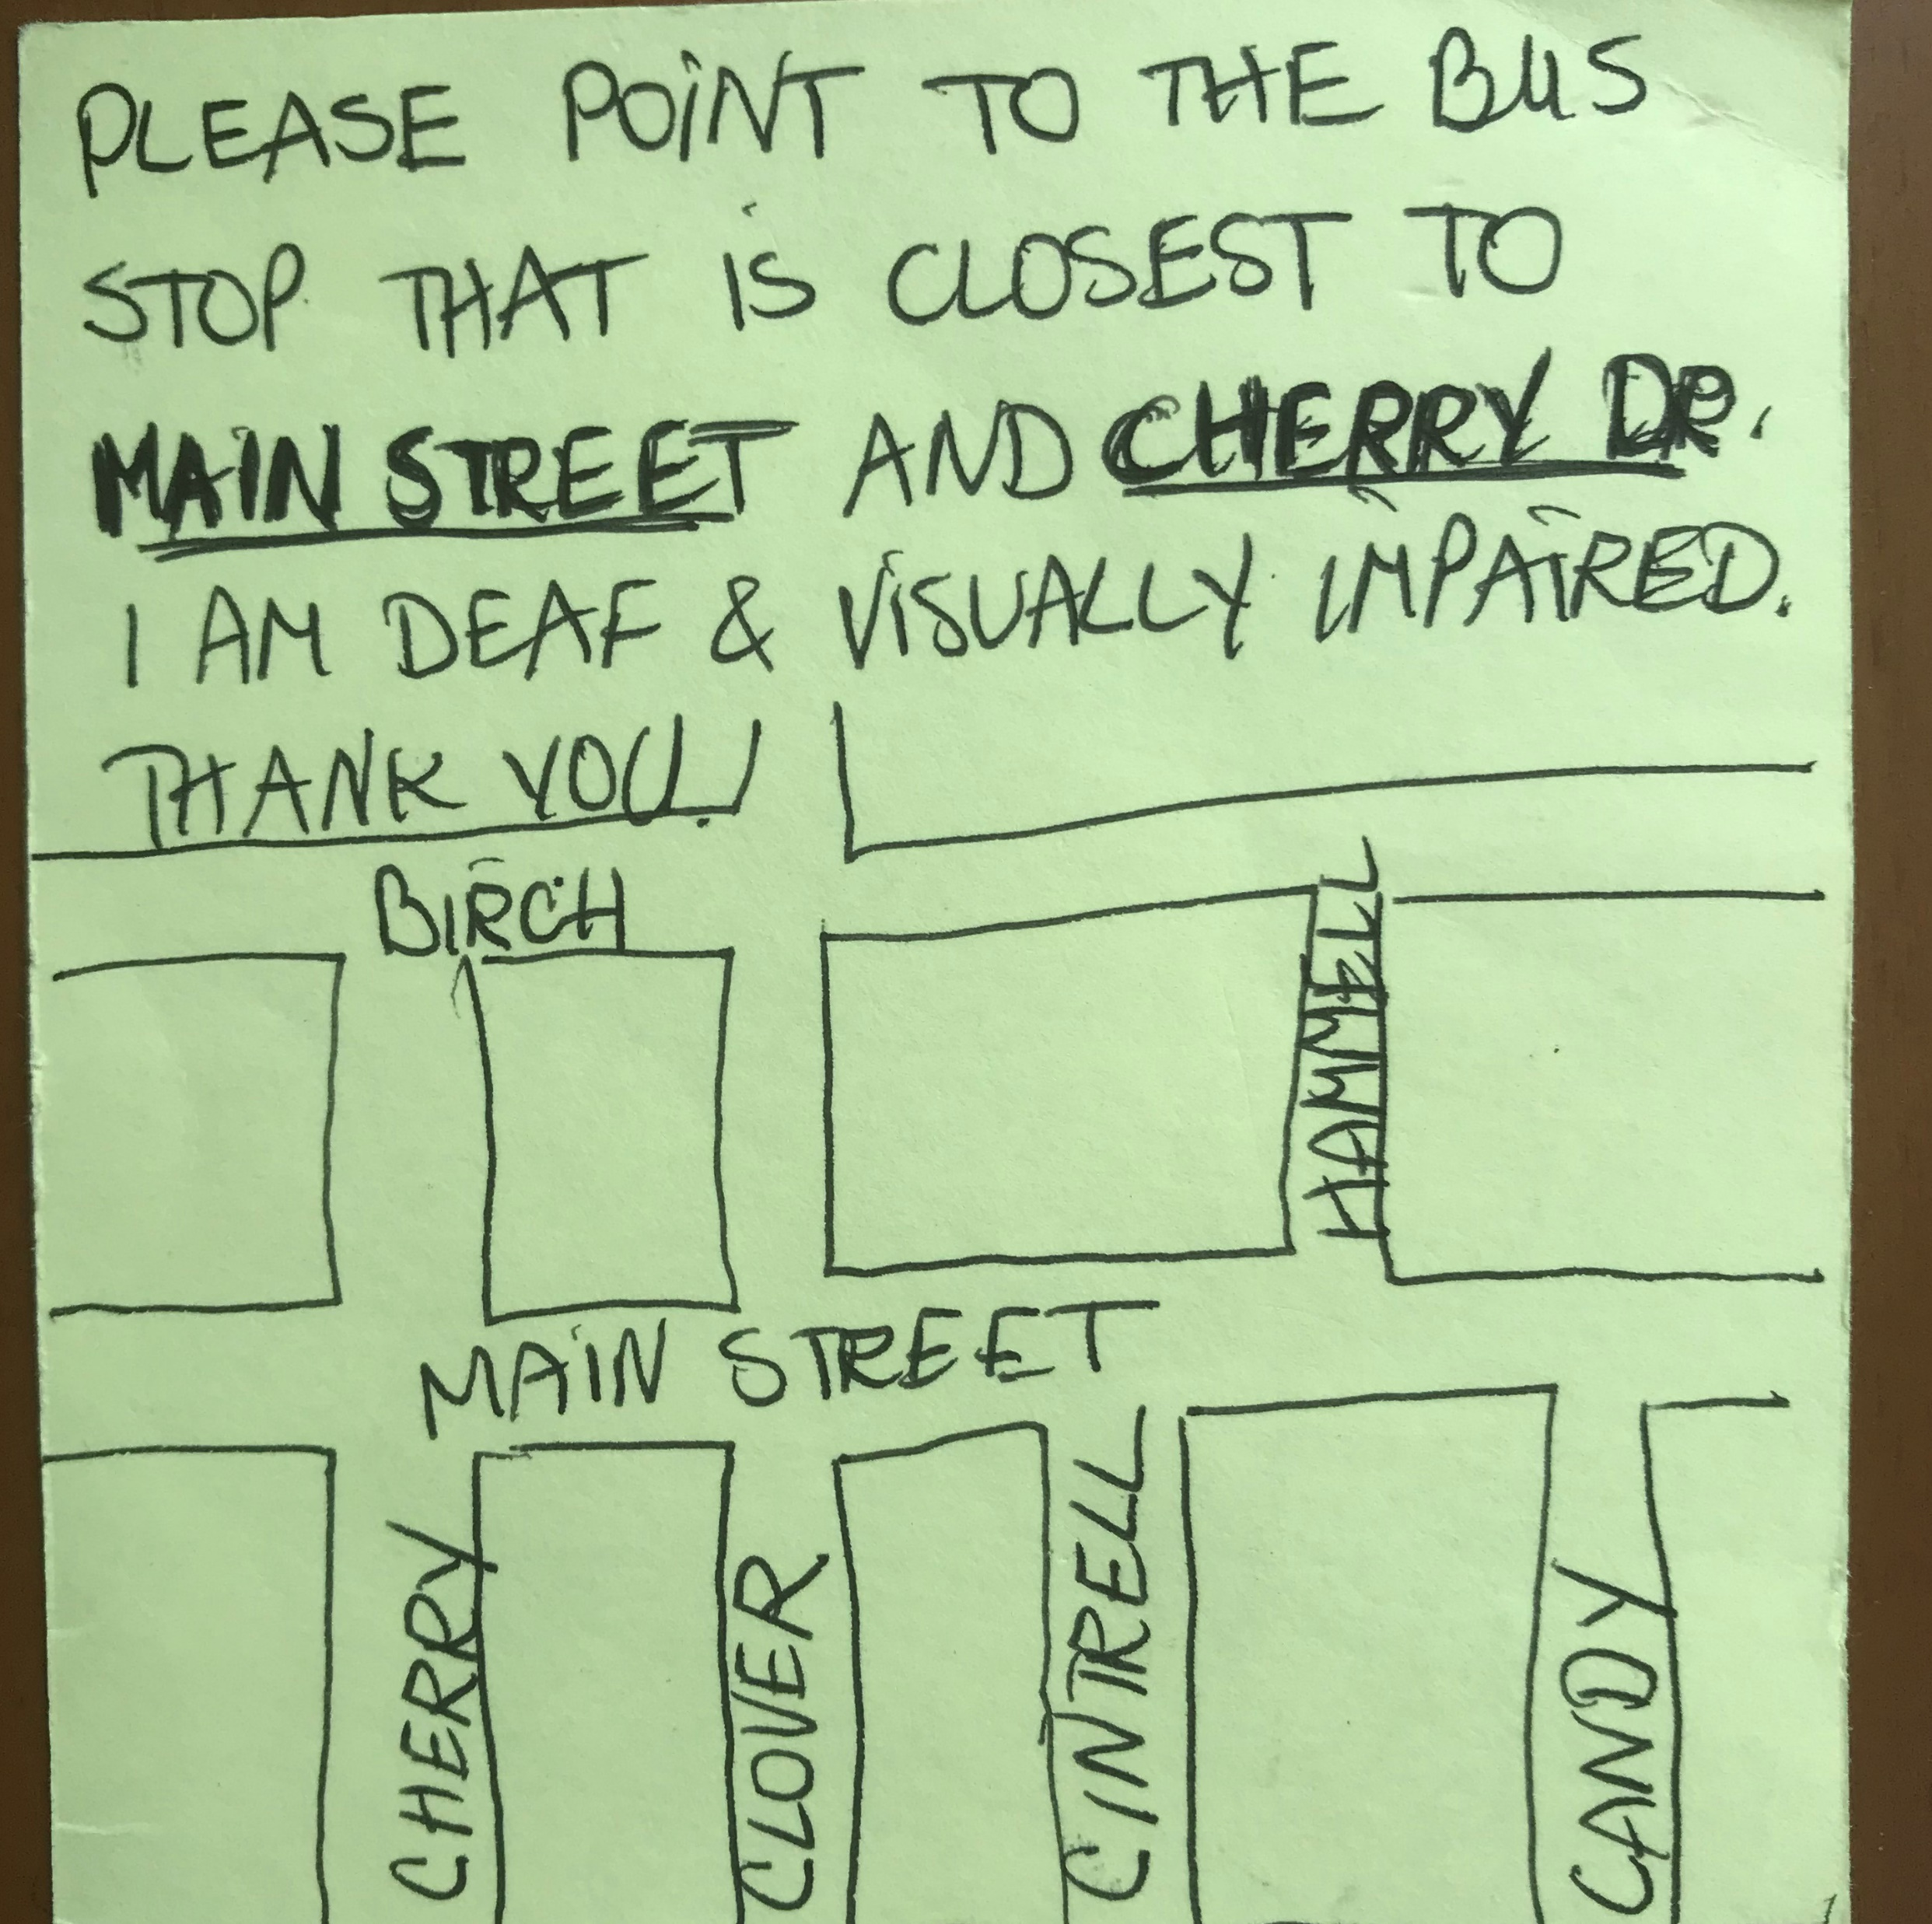 PLEASE POINT TO THE BUS
STOP THAT IS CLOSEST TO
MAIN STREET AND CHERRY DR.
I AM DEAF & VISUALLY IMPAIRED.
THANK YOU!
BIRCH
HAMMELL
MAIN STREET
CHERRY
CLOVER
CINTRELL
CANDY